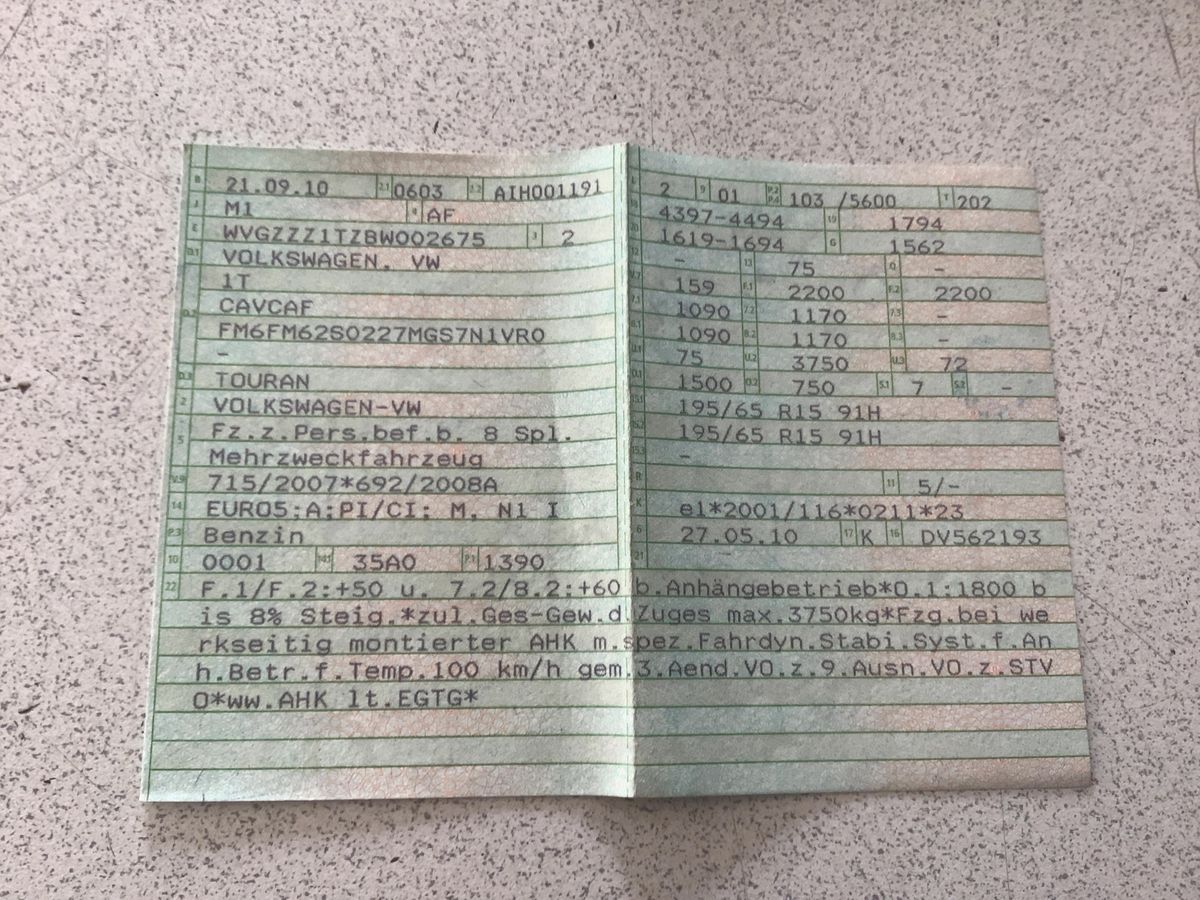 B 21.09.10 2.1 0603 2.2 AIH001191
J M1 4 AF
E WVGZZZ1TZBW002675 3 2
D.1 VOLKSWAGEN, VW
1T
D.2 CAVCAF
FM6FM62S0227MGS7N1VR0
-
D.3 TOURAN
2 VOLKSWAGEN-VW
5 Fz.z.Pers.bef.b. 8 Spl.
Mehrzweckfahrzeug
V.9 715/2007*692/2008A
14 EURO5;A;PI/CI; M, N1 I
P.3 Benzin
10 0001 14.1 35A0 P.1 1390
L 2 9 01 P.2 P.4 103 /5600 T 202
18 4397-4494 19 1794
20 1619-1694 G 1562
12 - 13 75 Q -
V.7 159 F.1 2200 F.2 2200
7.1 1090 7.2 1170 7.3 -
8.1 1090 8.2 1170 8.3 -
U.1 75 U.2 3750 U.3 72
O.1 1500 O.2 750 S.1 7 S.2 -
15.1 195/65 R15 91H
15.2 195/65 R15 91H
15.3 -
R 11 5/-
K e1*2001/116*0211*23
6 27.05.10 17 K 16 DV562193
21
22 F.1/F.2:+50 u. 7.2/8.2:+60 b.Anhängebetrieb*O.1:1800 b
is 8% Steig.*zul.Ges-Gew.d.Zuges max.3750kg*Fzg.bei we
rkseitig montierter AHK m.spez.Fahrdyn.Stabi.Syst.f.An
h.Betr.f.Temp.100 km/h gem.3.Aend.VO.z.9.Ausn.VO.z.STV
O*ww.AHK lt.EGTG*